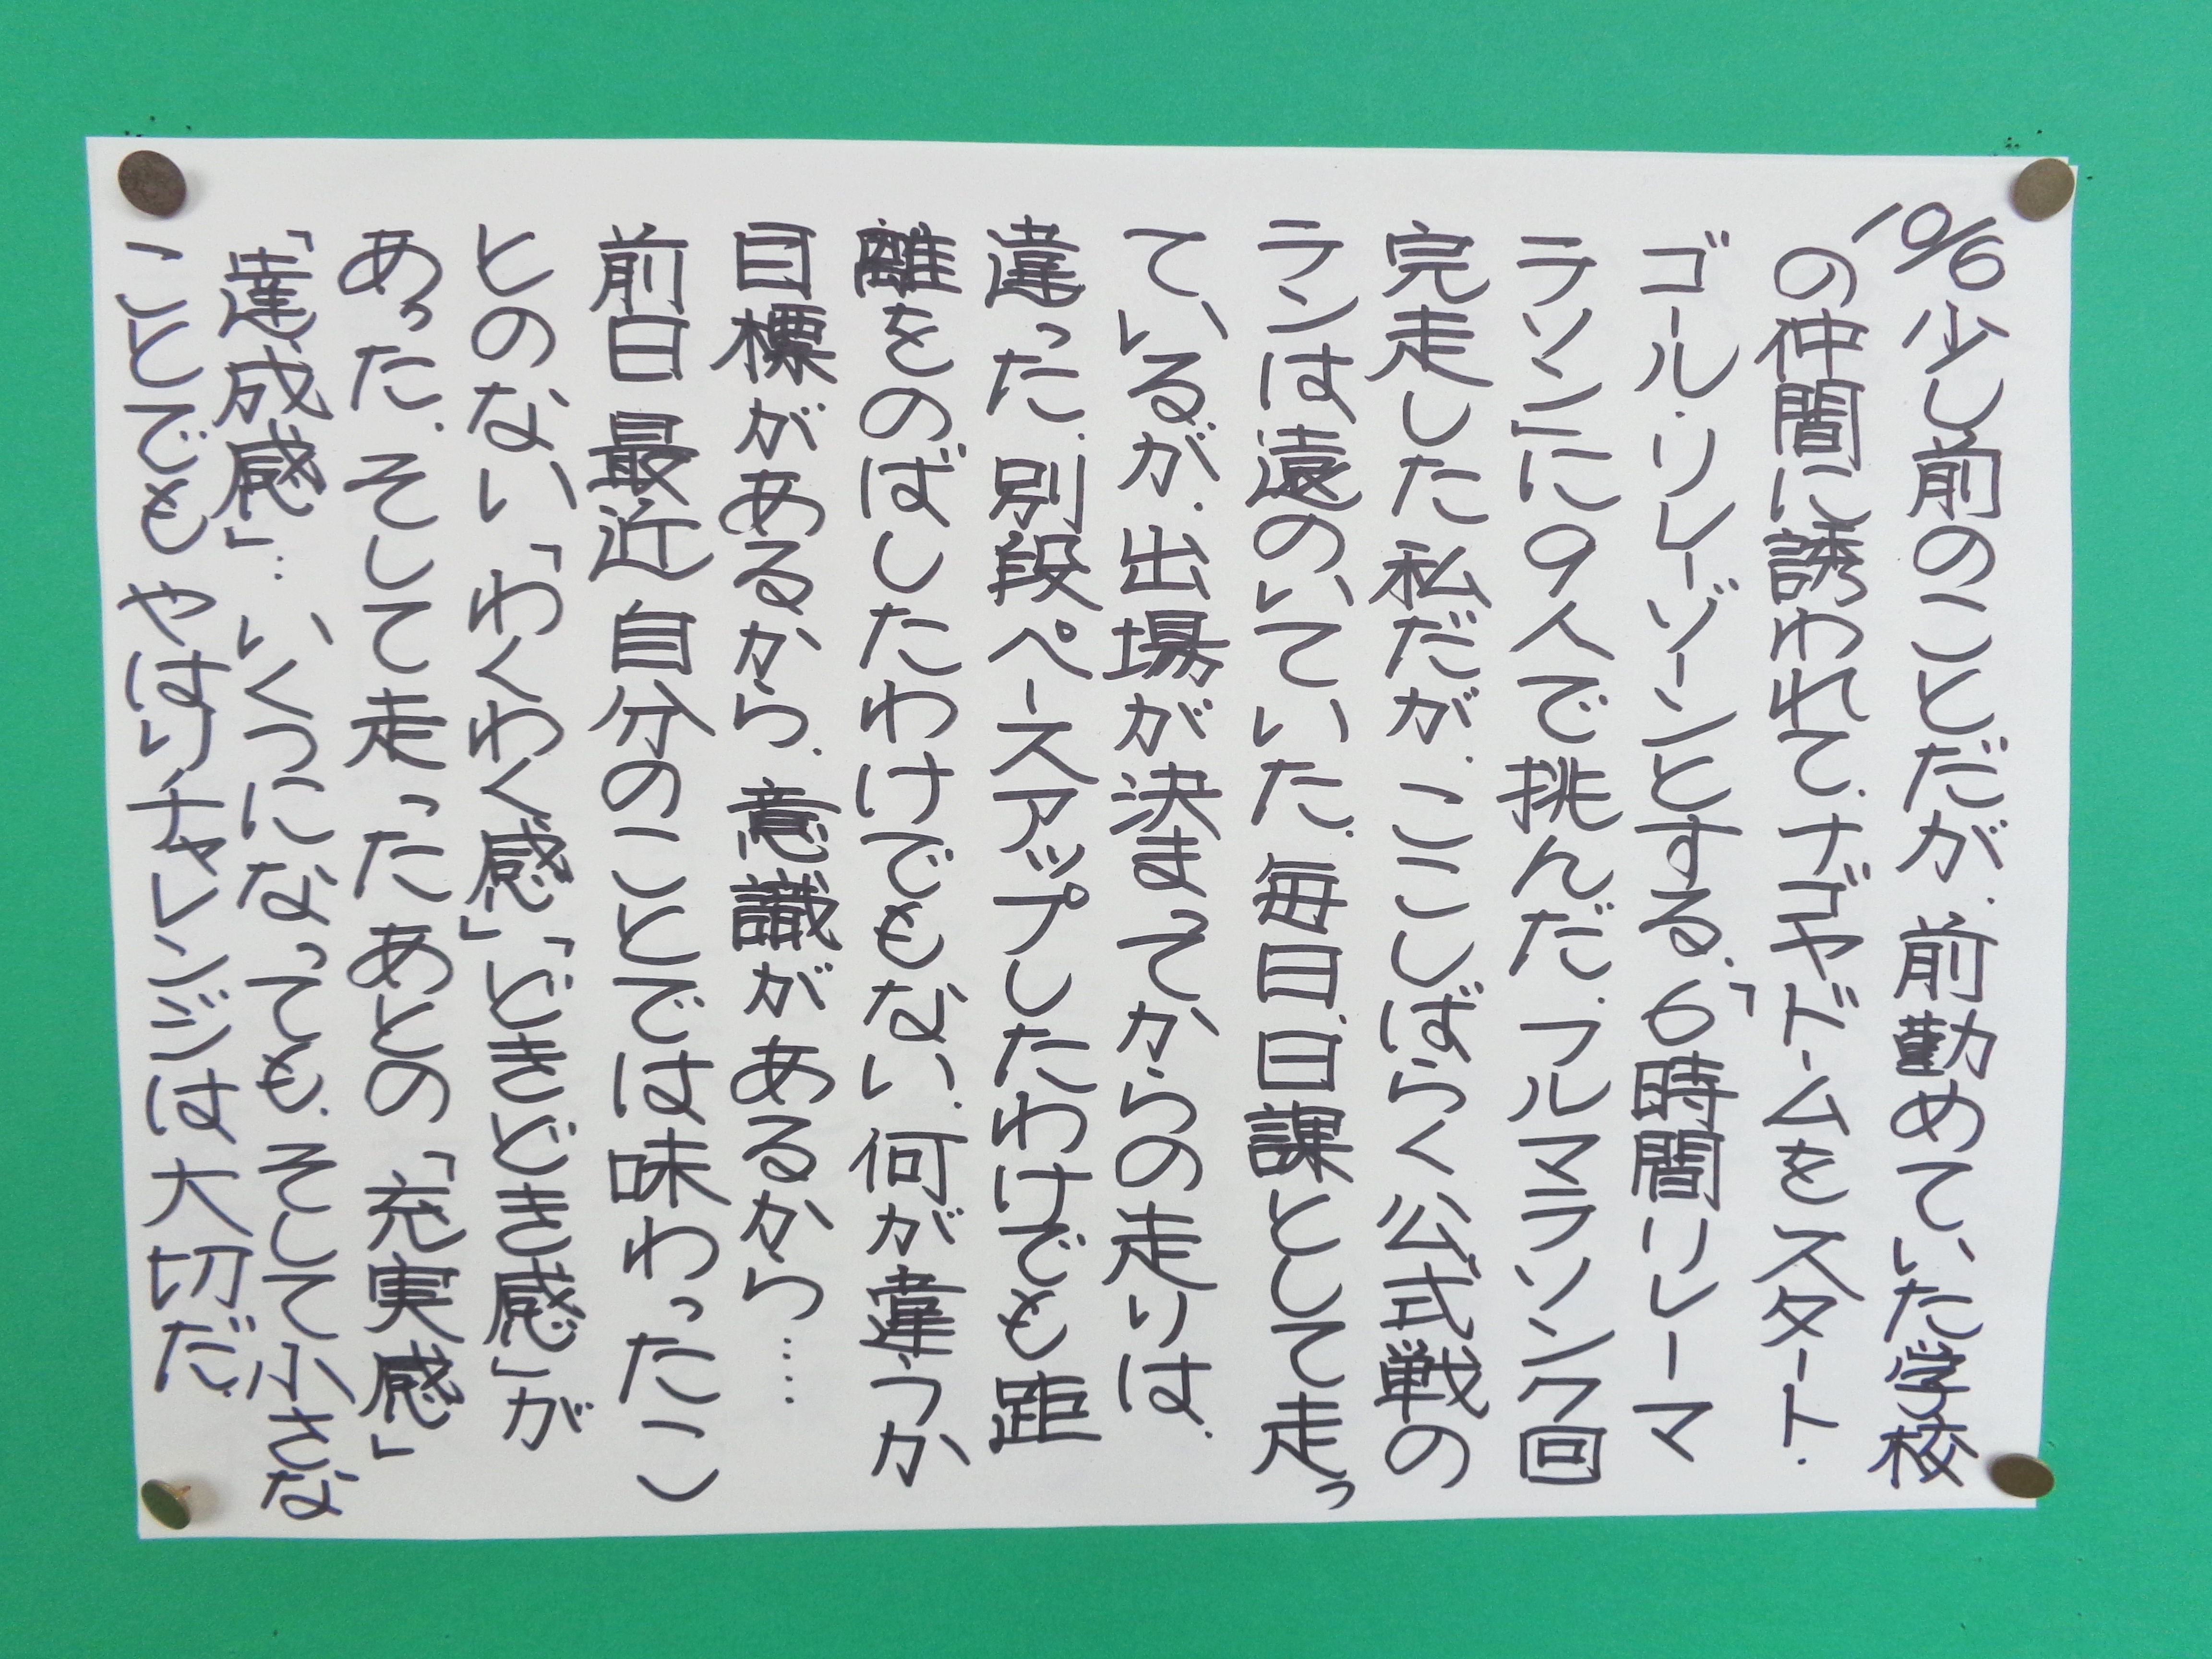 10/6 少し前のことだが、前勤めていた学校
の仲間に誘われて、ナゴヤドームをスタート、
ゴール、リレーゾーンとする、「6時間リレーマ
ラソン」に9人で挑んだ。フルマラソン7回
完走した私だが、ここしばらく公式戦の
ランは遠のいていた。毎日、日課として走っ
ているが、出場が決まってからの走りは、
違った。別段ペースアップしたわけでも距
離をのばしたわけでもない。何が違うか
目標があるから、意識があるから……
前日 最近 自分のことでは味わったこ
とのない「わくわく感」「どきどき感」が
あった。そして走ったあとの「充実感」
「達成感」… いくつになっても、そして小さな
ことでも やはりチャレンジは大切だ。